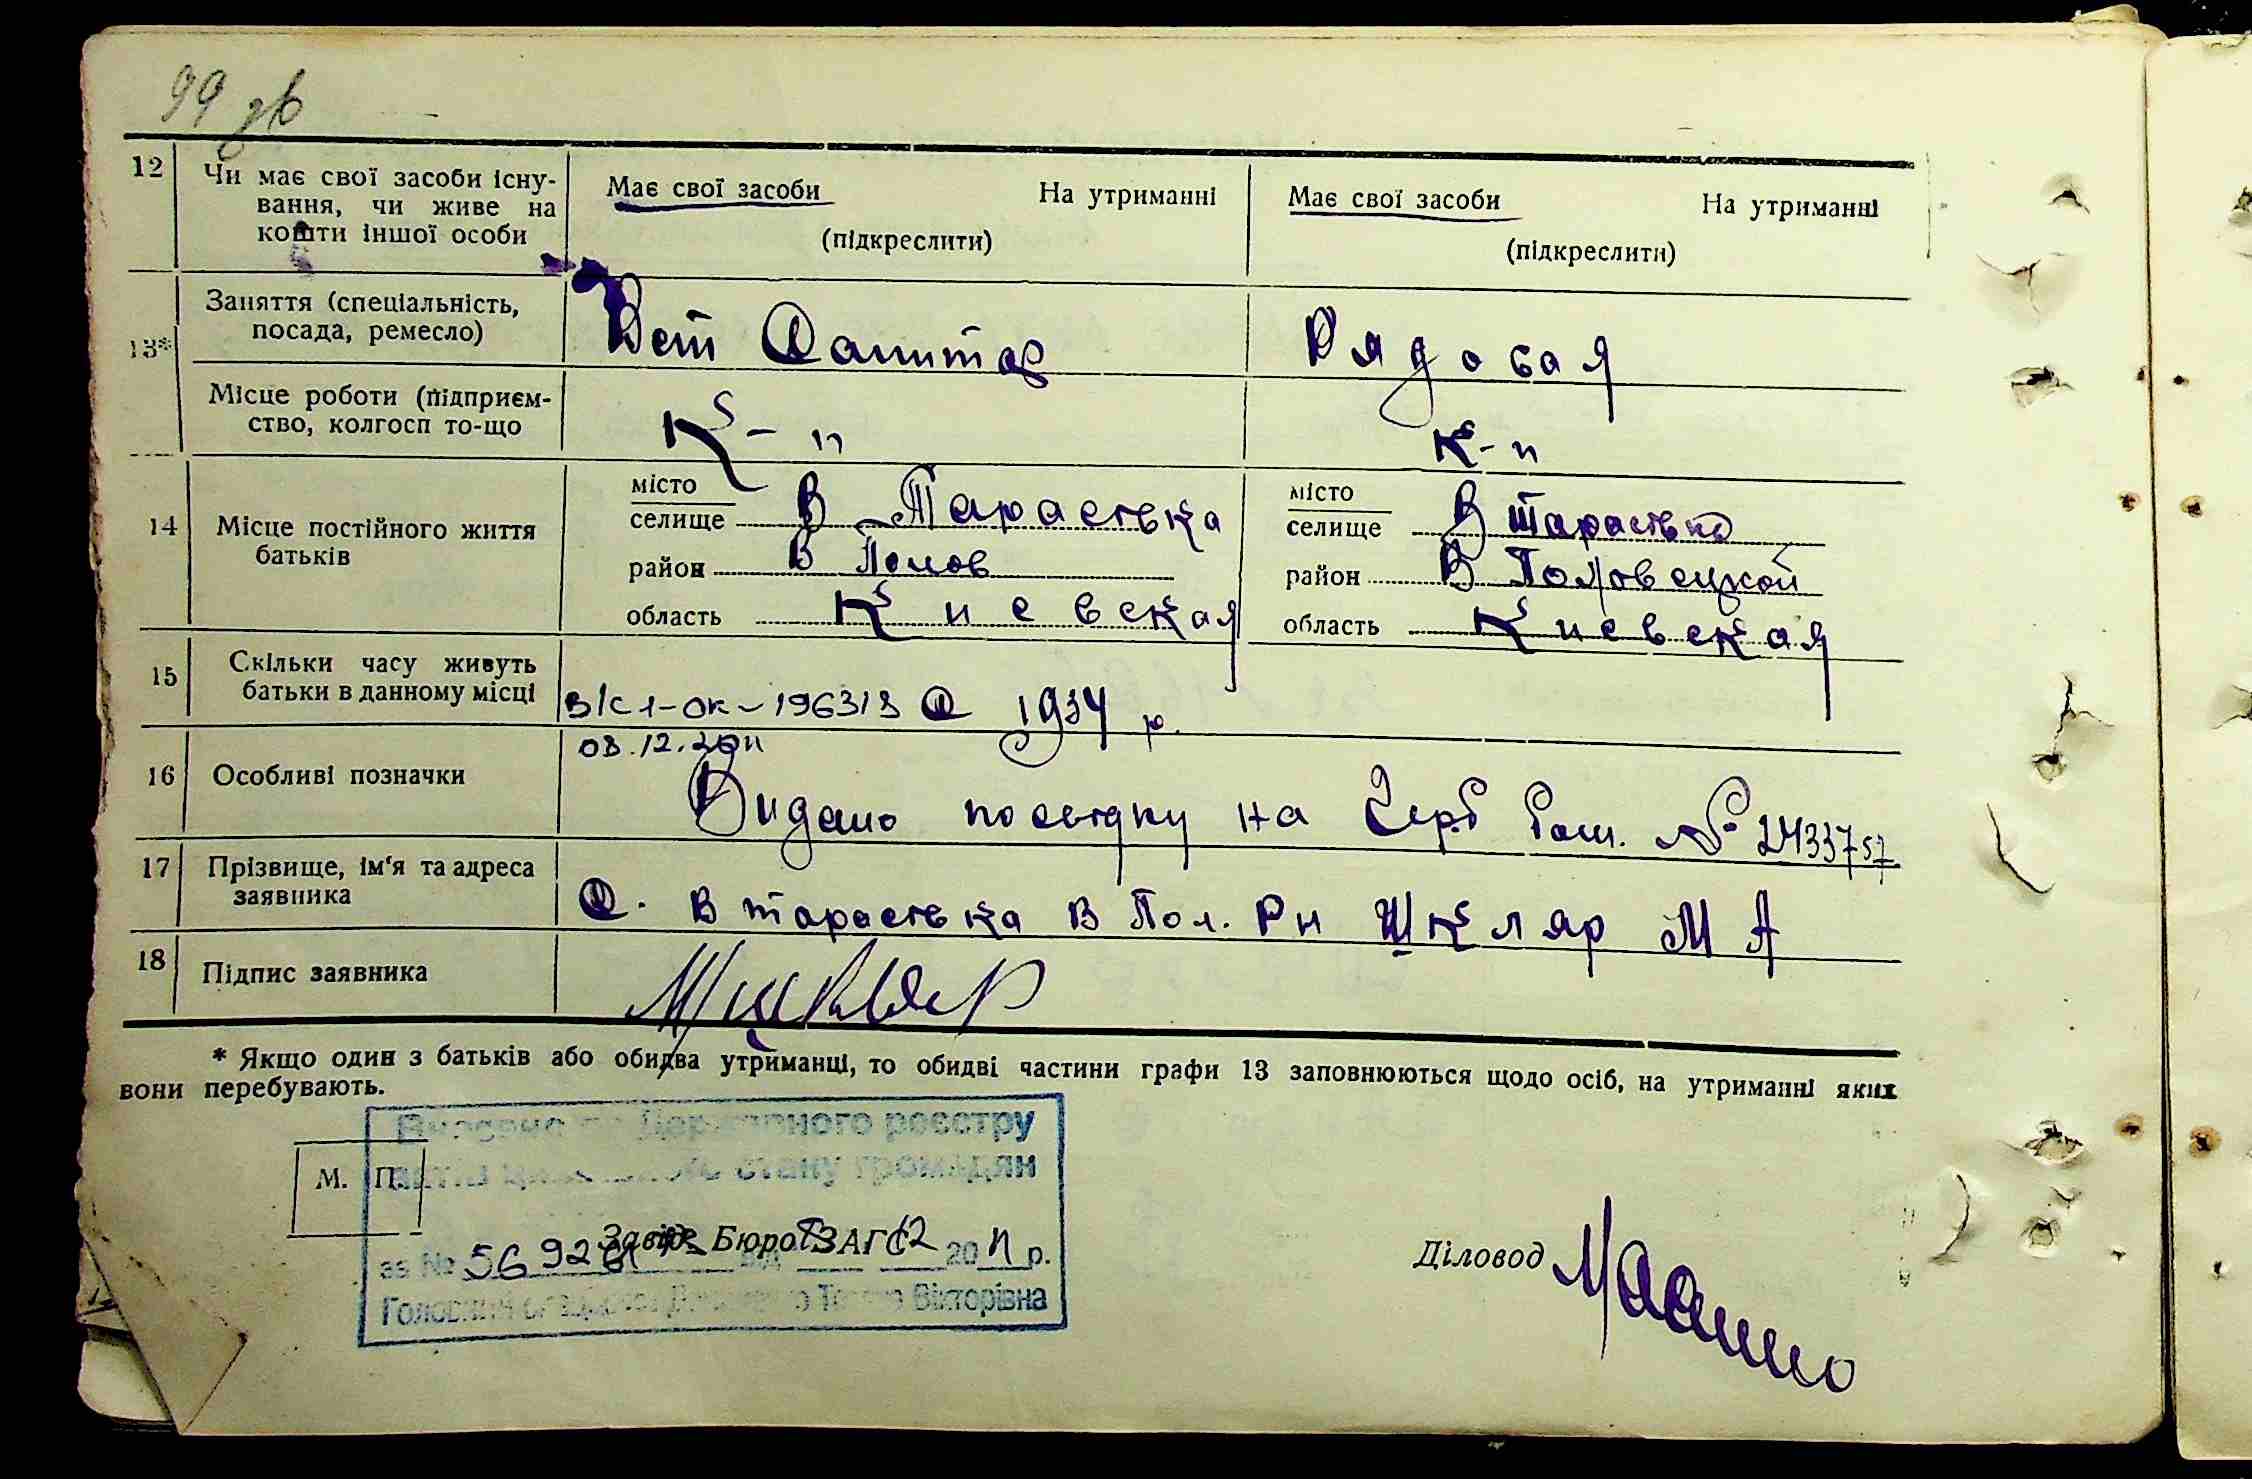 99 зв
12 Чи має свої засоби існу-
вання, чи живе на
кошти іншої особи
Має свої засоби На утриманні
(підкреслити)
Має свої засоби На утриманні
(підкреслити)
13* Заняття (спеціальність,
посада, ремесло)
Вет Санитар
Рядовая
Місце роботи (підприєм-
ство, колгосп то-що
К-п
К-п
14 Місце постійного життя
батьків
місто
селище В Тарасівка
район В Полов
область Киевская
місто
селище В Тарасівка
район В Половецкой
область Киевская
15 Скільки часу живуть
батьки в данному місці
В/С 1-ОК-196313 С 1934 р.
08.12.2011
16 Особливі позначки
Видано посвідку на Герб Пош. № 2433757
17 Прізвище, ім'я та адреса
заявника
С. В Тарасівка В Пол. Рн Шкляр М А
18 Підпис заявника
М Шкляр
* Якщо один з батьків або обидва утриманці, то обидві частини графи 13 заповнюються щодо осіб, на утриманні яких
вони перебувають.
М. П.
Державного реєстру
стану громадян
Завід. Бюро ЗАГС
за № 5692 12 2011 р.
Вікторівна
Діловод